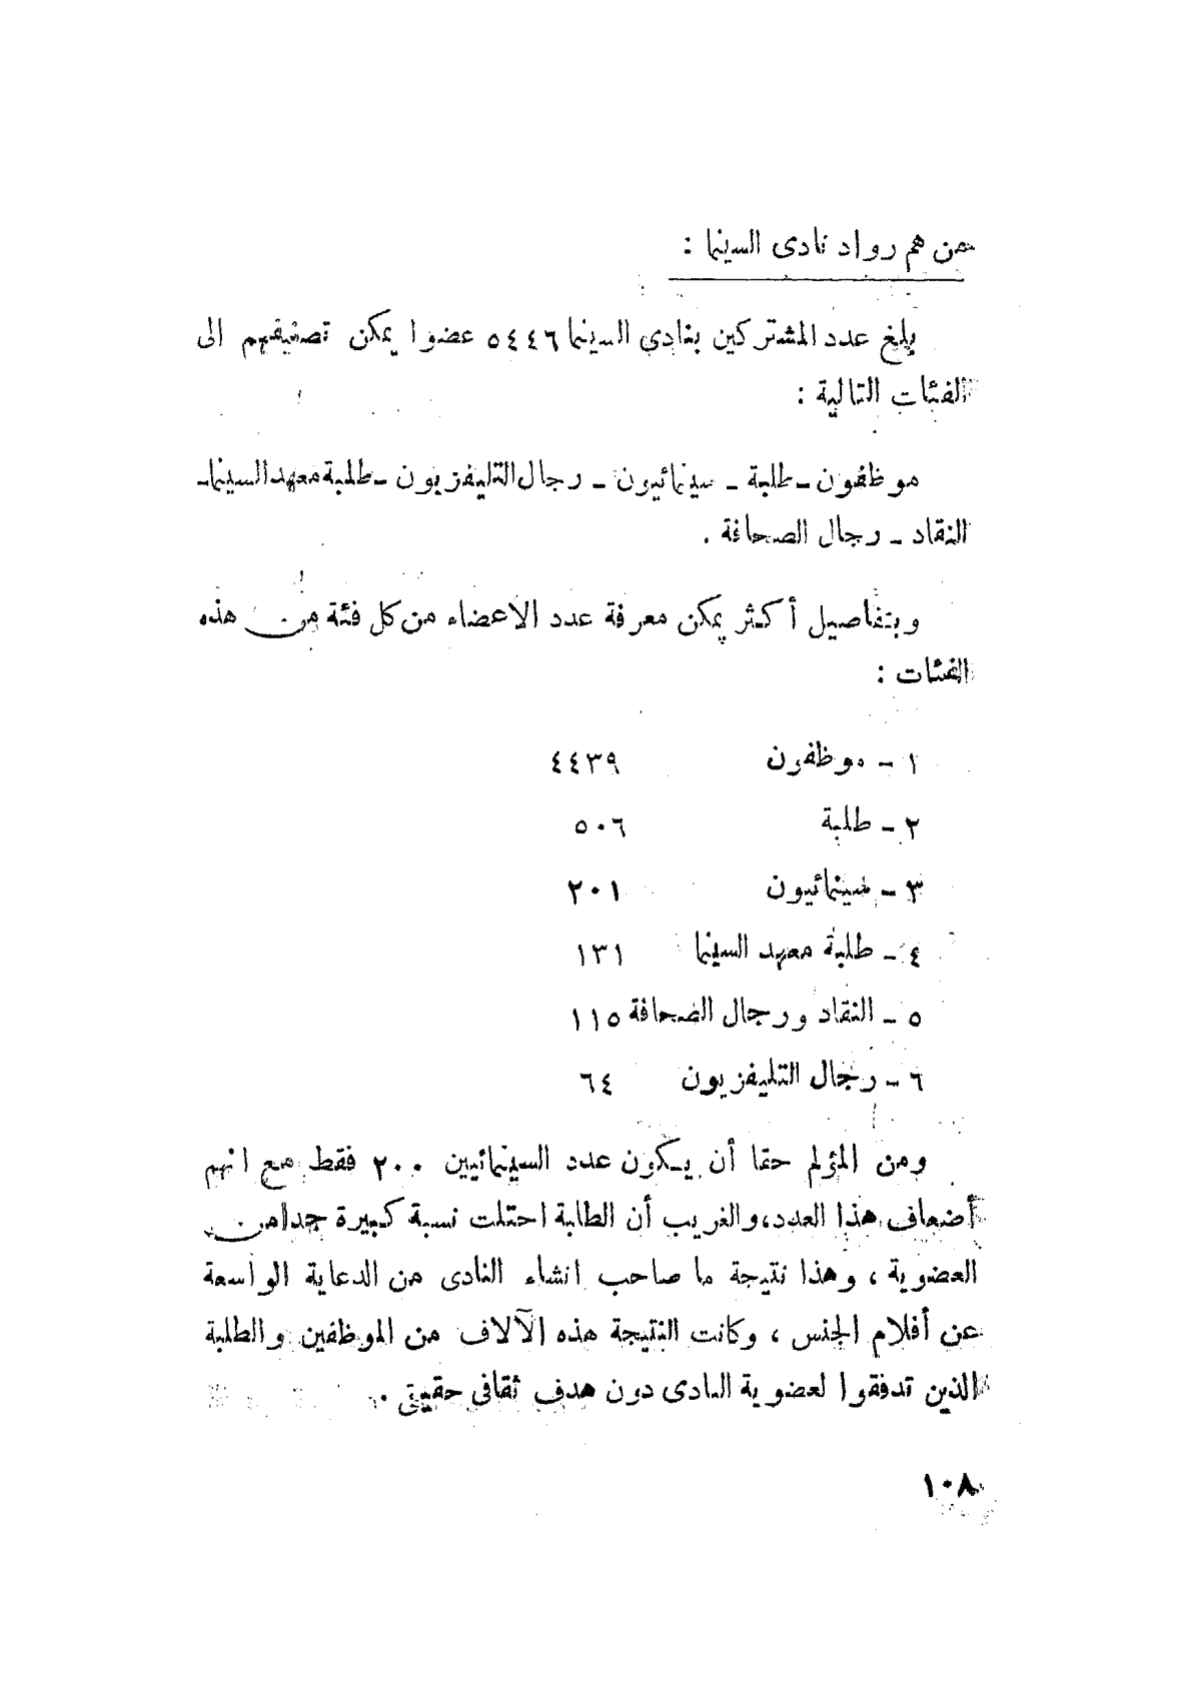 من هم رواد نادى السينما :
يبلغ عدد المشتركين بنادى السينما ٥٤٤٦ عضوا يمكن تصنيفهم الى
الفئات التالية :
موظفون ــ طلبة ــ سينمائيون ــ رجال التليفزيون ــ طلبة معهد السينما ــ
النقاد ــ رجال الصحافة .
وبتفاصيل أكثر يمكن معرفة عدد الاعضاء من كل فئة من هذه
الفئات :
١ ــ موظفون ٤٤٣٩
٢ ــ طلبة ٥٠٦
٣ ــ سينمائيون ٢٠١
٤ ــ طلبة معهد السينما ١٣١
٥ ــ النقاد ورجال الصحافة ١١٥
٦ ــ رجال التليفزيون ٦٤
ومن المؤلم حقا أن يكون عدد السينمائيين ٢٠٠ فقط مع انهم
أضعاف هذا العدد، والغريب أن الطلبة احتلت نسبة كبيرة جدا من
العضوية ، وهذا نتيجة ما صاحب انشاء النادى من الدعاية الواسعة
عن أفلام الجنس ، وكانت النتيجة هذه الآلاف من الموظفين والطلبة
الذين تدفقوا لعضوية النادى دون هدف ثقافى حقيقى .
١٠٨